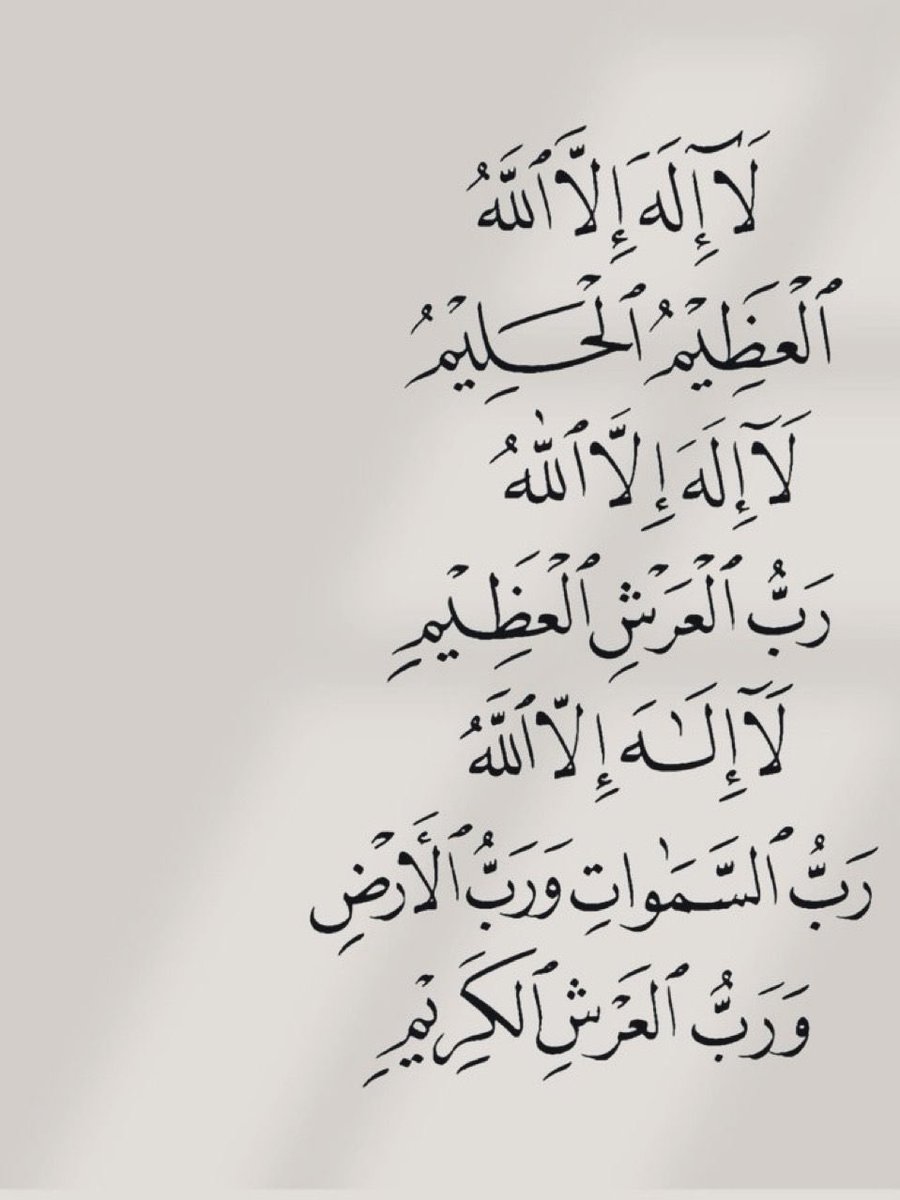 لَآ إِلَهَ إِلَّا ٱللَّهُ
ٱلْعَظِيْمُ ٱلْحَلِيْمُ
لَآ إِلَهَ إِلَّا ٱللّٰهُ
رَبُّ ٱلْعَرْشِ ٱلْعَظِيْمِ
لَآ إِلَـٰهَ إِلَّا ٱللَّهُ
رَبُّ ٱلسَّمَـٰوَاتِ وَرَبُّ ٱلْأَرْضِ
وَرَبُّ ٱلعَرْشِ ٱلكَرِيْمِ